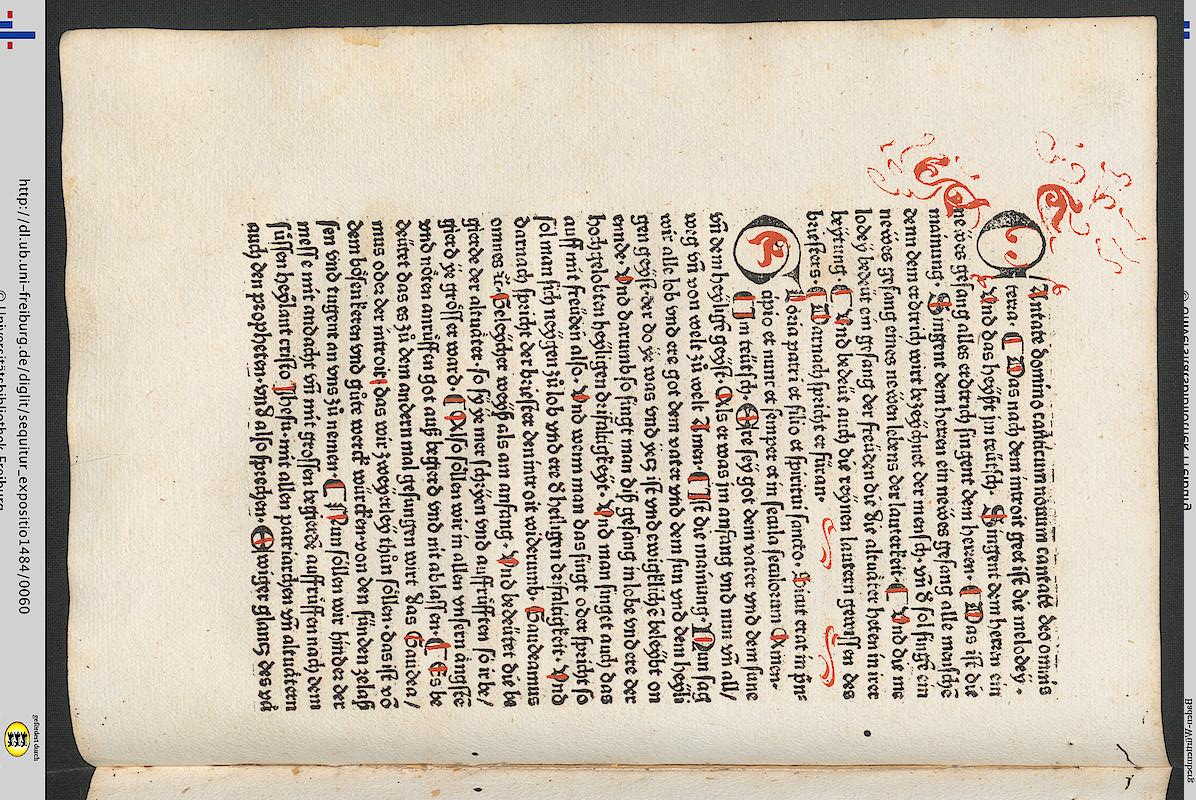 Cantate domino canticum nouum cantate deo omnis
terra. Das nach dem introit geet ist die melodey.
Und das heyßt jn teütsch. Singent dem herren ein
newes gesang alles erdtrich singent dem herren. Das ist die
mainung. Singent dem herren ein newes gesang alle mensche
denn dem erdtrich wirt bezeychnet der mensch. vñ d sol singen ein
newes gesang eines newen lebens der lauterkeit. Und die me
lodey bedeüt ein gesang der freüden die die altuäter heten in irer
beytung. Und bedeüt auch die reynen lautern gewissen des
briesters. Darnach spricht er füran.
Gloria patri et filio et spiritui sancto. Sicut erat in pñ
cipio et nunc et semper et in secula seculorum Amen.
In teütsch. Ere sey got dem vater vnd dem sune
vñ dem heylige geyst. Als er was im anfang vnd nun vñ all/
weg vñ von welt zů welt Amen. Ist die mainung. Nun sag
wir alle lob vnd ere got dem vater vnd dem sun vnd dem heyli
gen geyst der do ye was vnd yecz ist vnd ewigkliche beleybt on
ennde. Und darumb so singt man diß gesang in lobe vnd ere der
hochgelobten heyligen driualtigkeyt. Und man singet auch das
auff mit freüden also. Und wenn man das singt oder spricht so
sol man sich neygen zů lob vnd ere d heiligen driualtigkeit. Und
darnach spricht der briester den introit widerumb. Gaudeamus
omnes ꝛc. Geleycher weyß als am anfang. Und bedeütet die be
gierde der altenäter. so sy ye mer schryen vnd auffrüfften so ir be/
gierd ye grösser ward. Also söllen wir in allen vnsern ängste
vnd nöten anrüffen got auß begierd vnd nit ablassen. Es be
deütet das es zů dem andern mal gesungen wirt das Gaudea/
mus oder der introit. das wir zweyerley thůn söllen. das ist võ
dem bösen keren vnd gůte werck würcken. von den sünden zelaß
sen vnd tugent an vns zů nemen. Nun söllen wir hinder der
messe mit andacht vñ mit grossen begierde auffrüffen nach dem
süssen heylant cristo Jhesu. mit allen patriarchen vñ altuätern
auch den propheten. vn d also sprechen. O ewiger glancz des vä
http://dl.ub.uni-freiburg.de/diglit/sequitur_expositio1484/0060
© Universitätsbibliothek Freiburg
gefördert durch
Baden-Württemberg